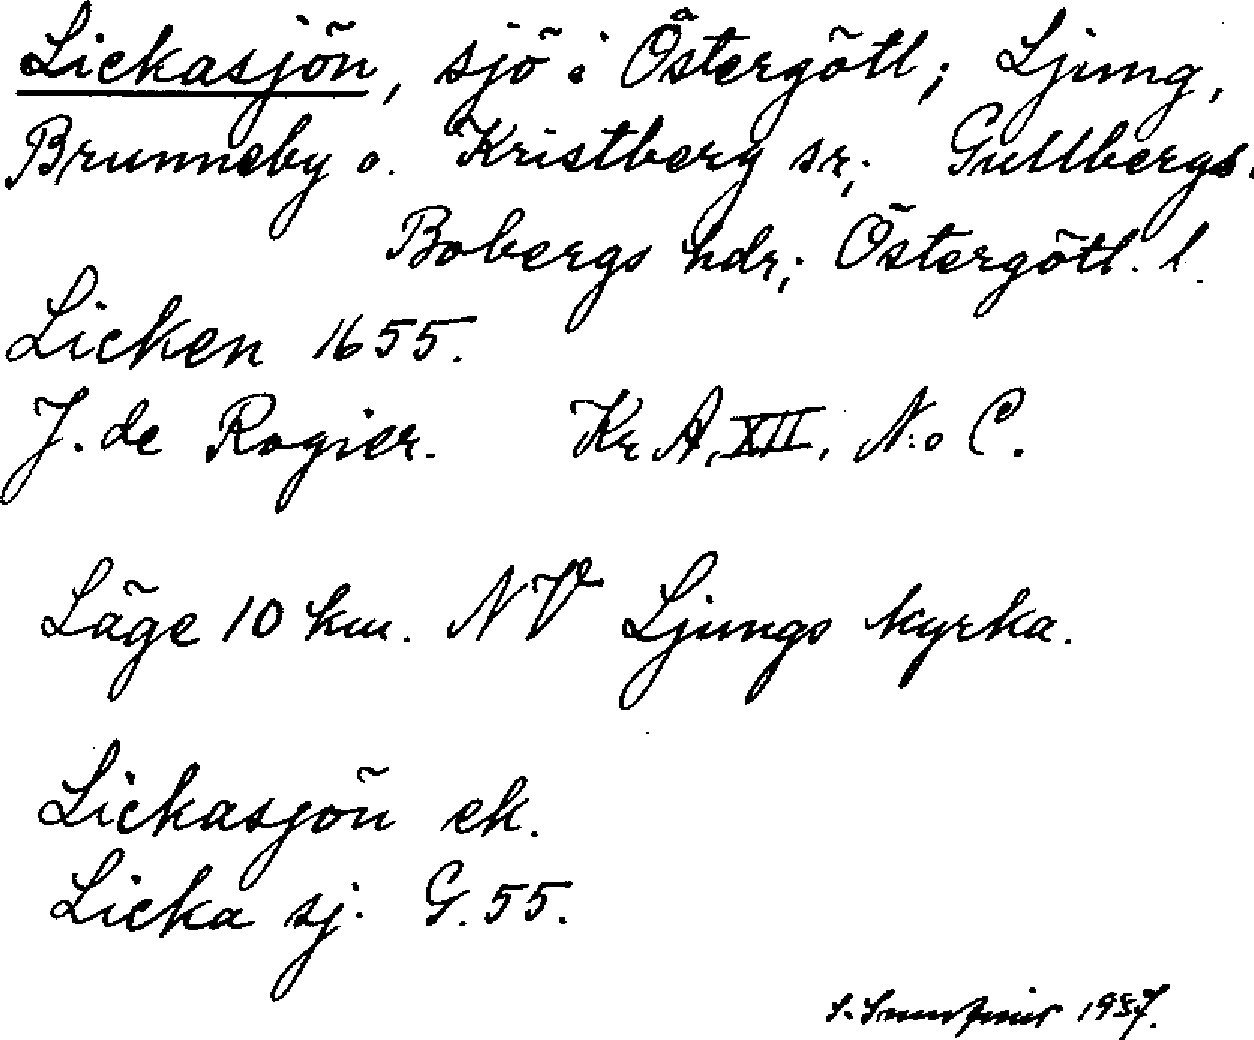 Lickasjön, sjö i Östergötl; Ljung,
Brunneby o. Kristberg sr; Gullbergs.
Bobergs hdr; Östergötl. l.
Licken 1655.
J. de Rogier. Kr A, XII, N:o C.
Läge 10 km. NV Ljungs kyrka.
Lickasjön ek.
Licka sj. G. 55.
1937.